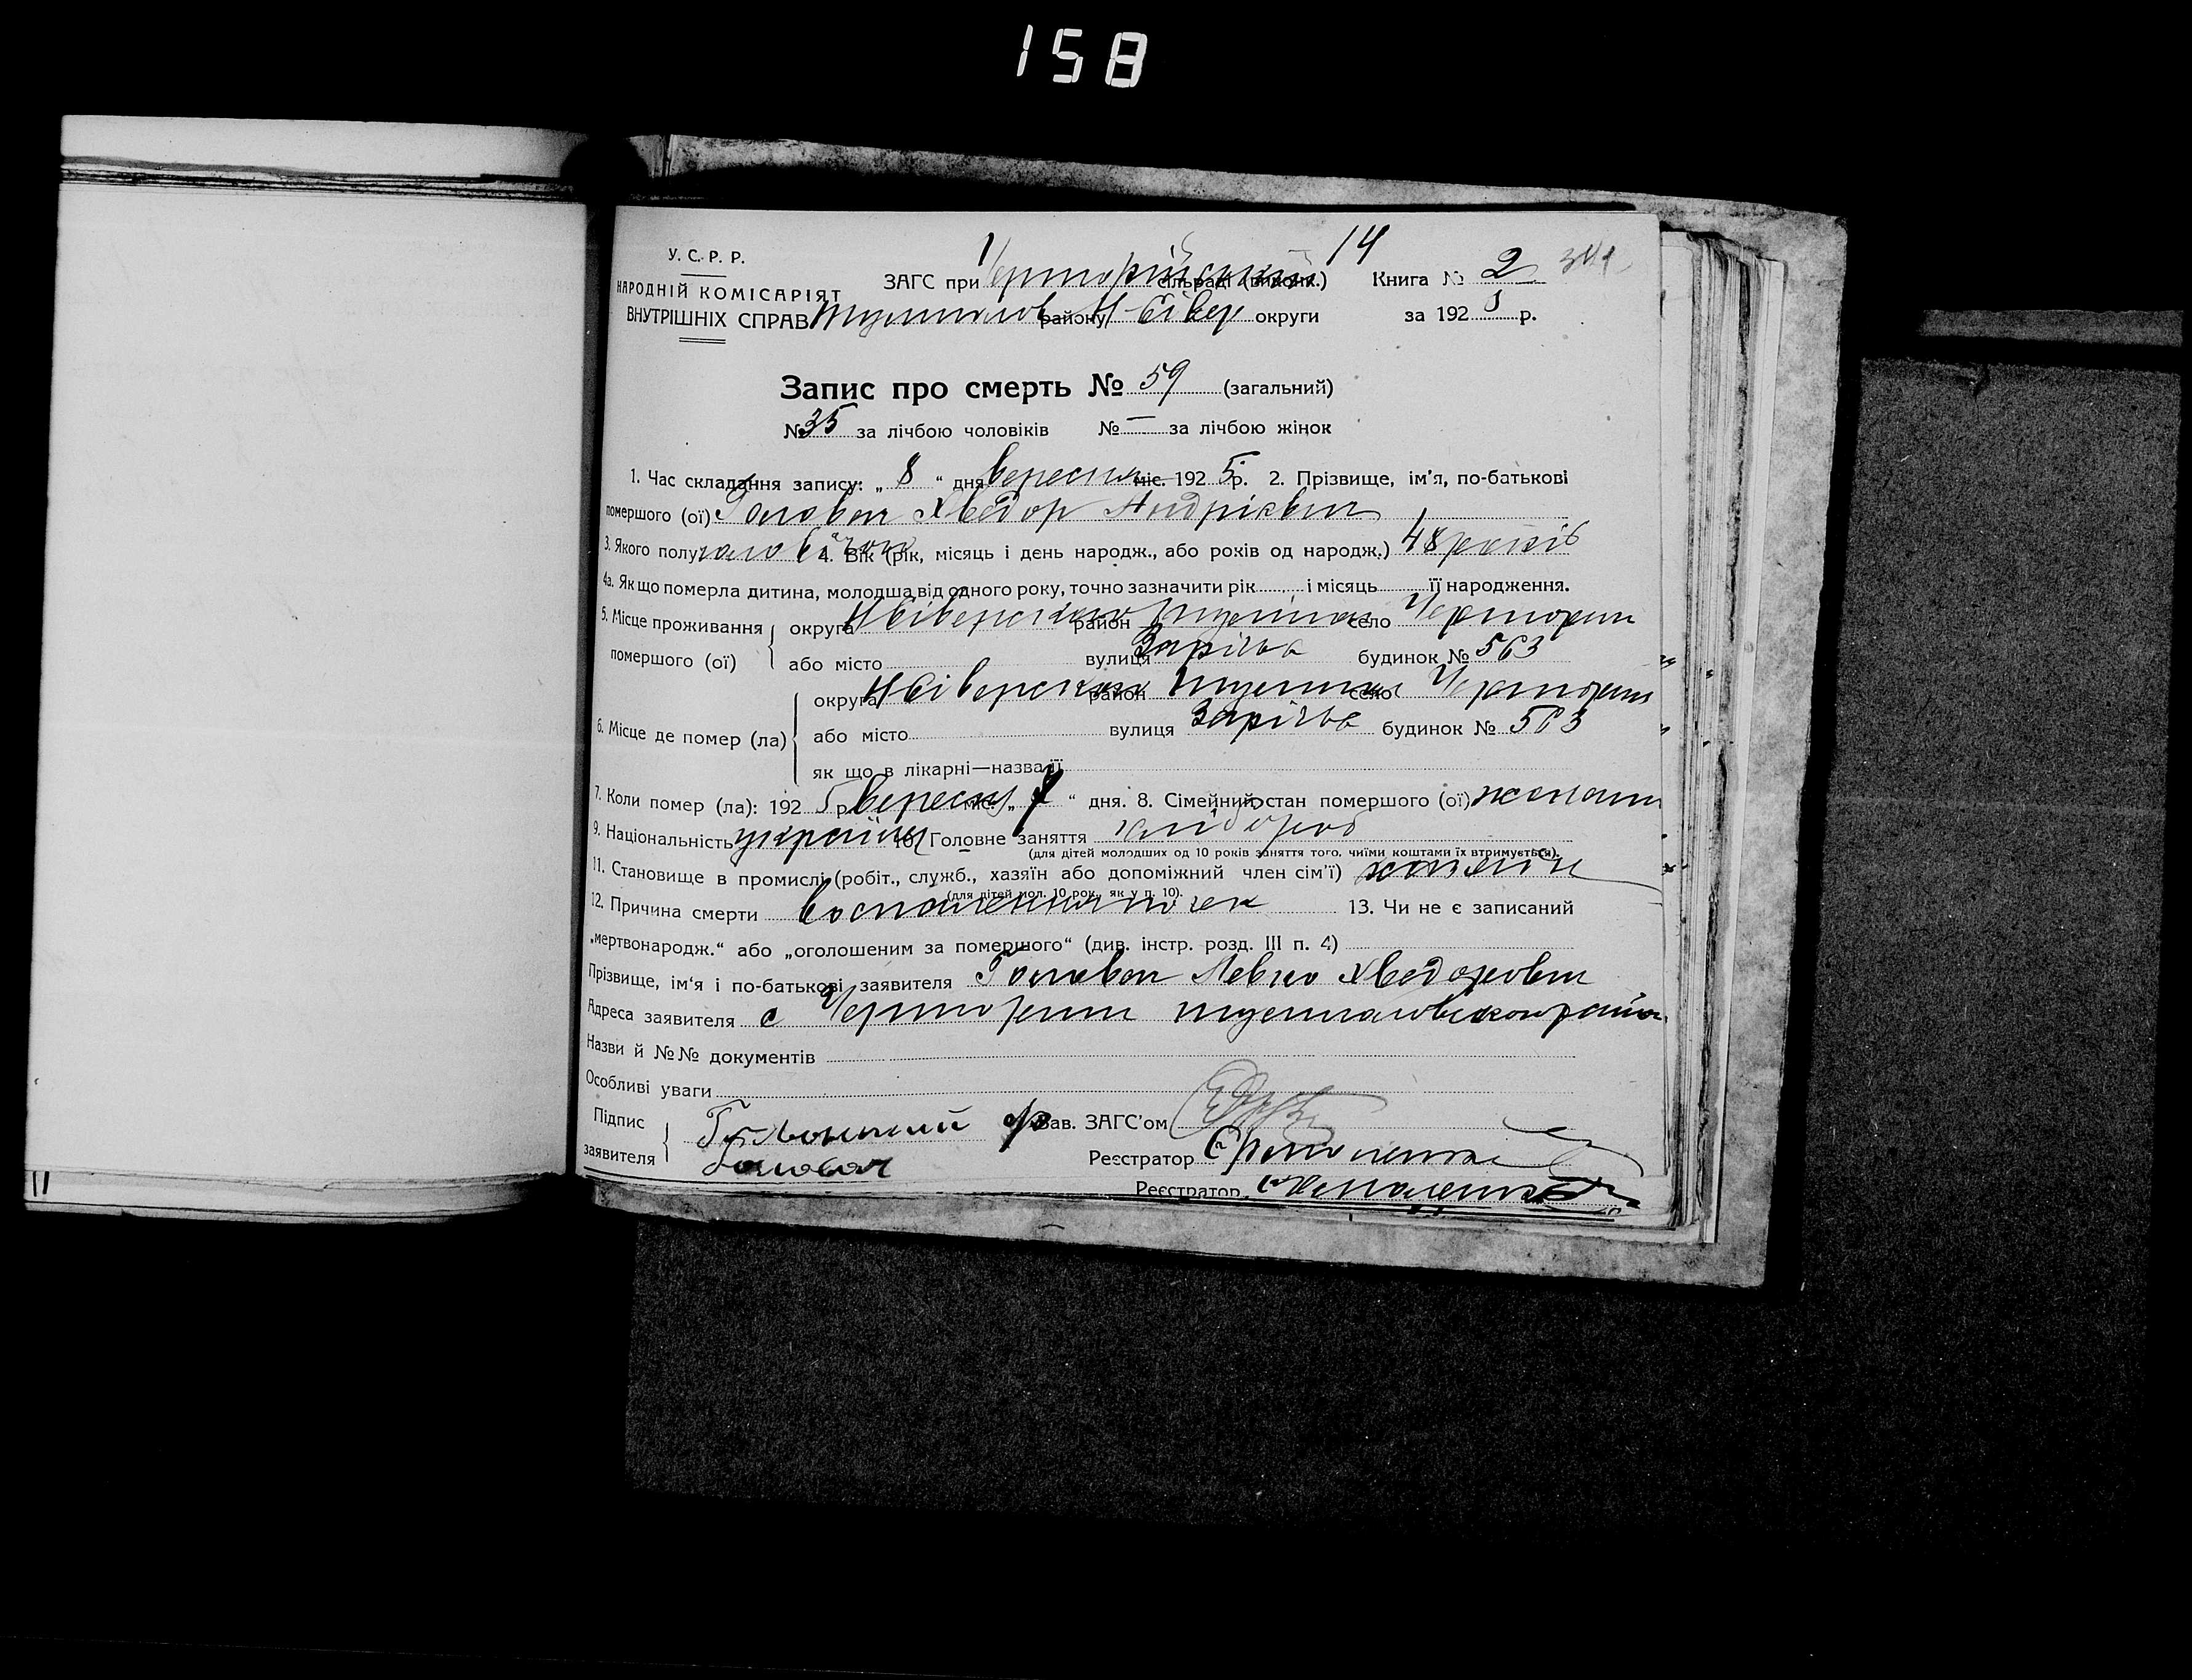 158
14
У. С. Р. Р.
ЗАГС при Чорторійський сільраді (виконк.) Книга № 2
НАРОДНІЙ КОМІСАРІЯТ
ВНУТРІШНІХ СПРАВ району Н-Сівер округи за 192 5 р.
Запис про смерть № 59 (загальний)
№ 35 за лічбою чоловіків № — за лічбою жінок
1. Час складання запису: „ 8 “ дня вересня міс. 192 5 р. 2. Прізвище, ім'я, по-батькові
помершого (ої) Головач Хведор Андрієвич
3. Якого полу чоловічого 4. Вік (рік, місяць і день народж., або років од народж.) 48 років
4а. Як що померла дитина, молодша від одного року, точно зазначити рік і місяць її народження.
5. Місце проживання округа НСіверського район село Чорториги
помершого (ої) або місто вулиця Зарічча будинок № 563
округа НСіверського район село Чорториги
6. Місце де помер (ла) або місто вулиця Зарічча будинок № 563
як що в лікарні—назва її
7. Коли помер (ла): 192 5 р. вересня міс. „ 7 “ дня. 8. Сімейний стан помершого (ої) женатий
9. Національність 10. Головне заняття хлібороб
(для дітей молодших од 10 років заняття того, чиїми коштами їх втримується).
11. Становище в промислі (робіт., служб., хазяїн або допоміжний член сім'ї) хозяїн
(для дітей мол. 10 рок., як у п. 10).
12. Причина смерти воспаления почек 13. Чи не є записаний
„мертвонародж.“ або „оголошеним за помершого“ (див. інстр. розд. III п. 4)
Прізвище, ім'я і по-батькові заявителя Головач Левко Хведорович
Адреса заявителя с Чорториги
Назви й №№ документів
Особливі уваги
Підпис
заявителя Головач
Зав. ЗАГС'ом
Реєстратор
Реєстратор